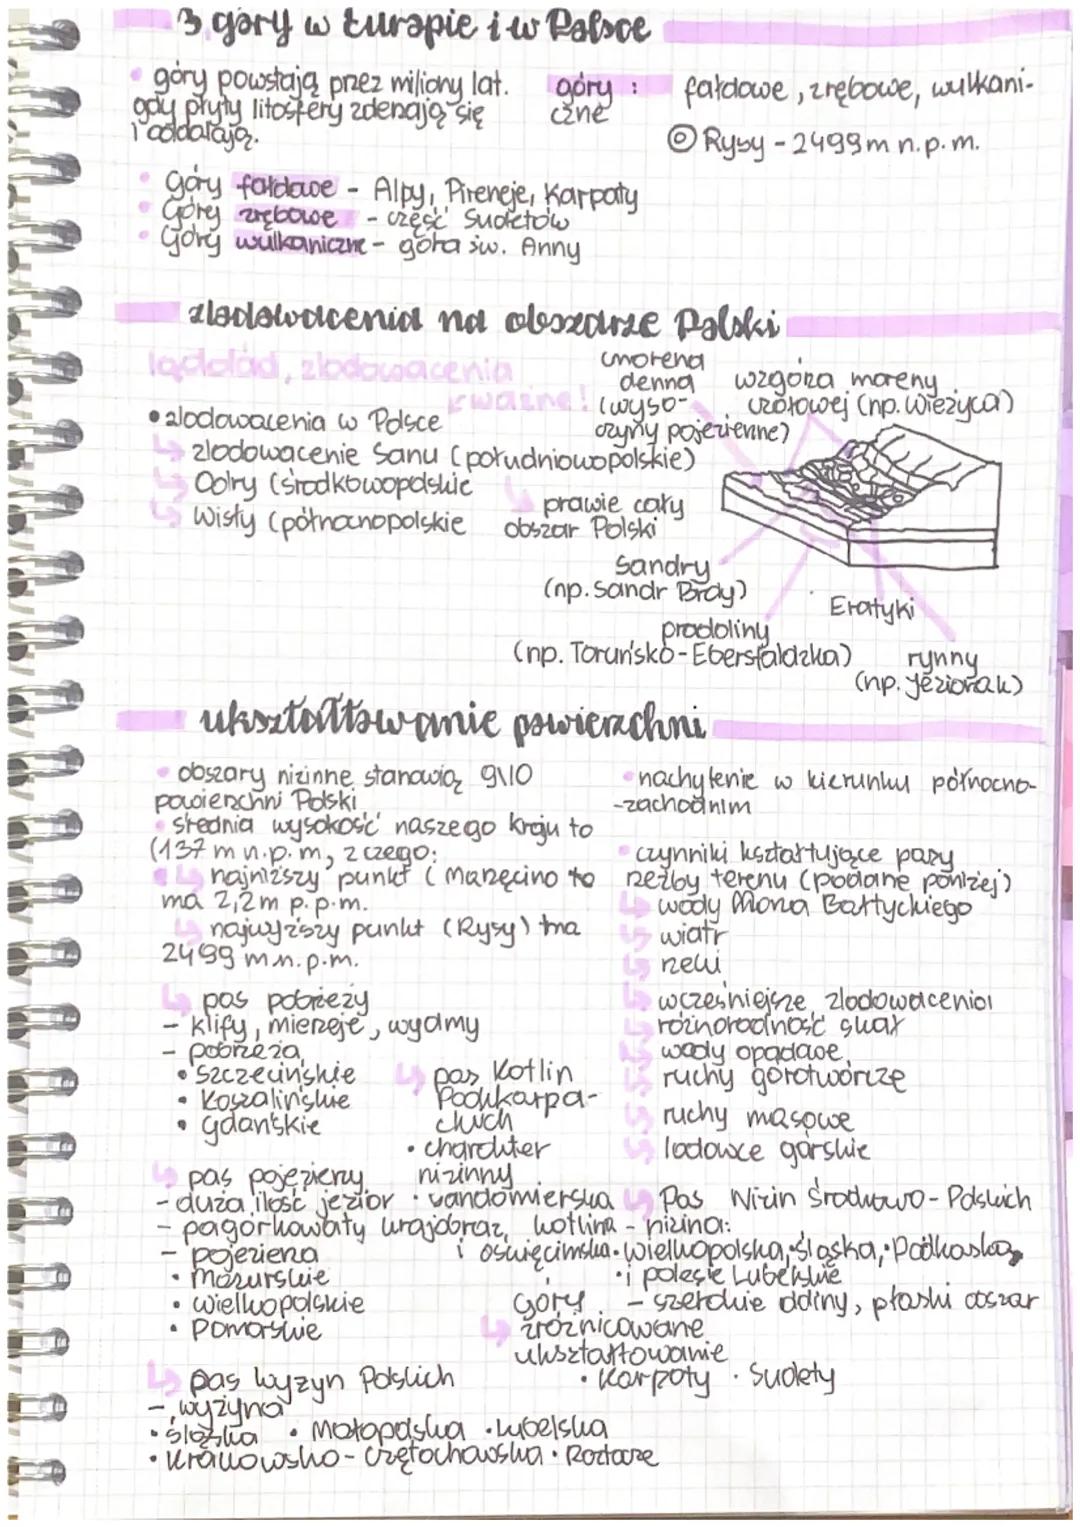 3 góry w Europie i w Polsce
• góry powstają przez miliony lat.
gdy płyty litosfery zderzają się
i oddalają.
góry : fałdowe, zrębowe, wulkani-
czne
Rysy - 2499m n.p.m.
• góry fałdowe - Alpy, Pireneje, Karpaty
• Góry zrębowe - część Sudetów
• Góry wulkaniczne - góra św. Anny
zlodowacenia na obszarze Polski
lądolód, zlodowacenia
ważne!
• zlodowacenia w Polsce
zlodowacenie Sanu (południowopolskie)
Odry (środkowopolskie
Wisły (północnopolskie
prawie cały
obszar Polski
morena
denna
(wyso-
czyny pojezierne)
wzgórza moreny
czołowej (np. Wieżyca)
Sandry
(np. Sandr Brdy)
pradoliny
(np. Toruńsko-Ebersfaldzka)
Eratyki
rynny
(np. Jeziorak)
ukształtowanie powierzchni
• obszary nizinne stanowią 9\10
powierzchni Polski
• średnia wysokość naszego kraju to
(137 m n.p.m, z czego:
najniższy punkt (Marzęcino to
ma 2,2m p.p.m.
najwyższy punkt (Rysy) ma
2499 m.n.p.m.
pas pobrzeży
- klify, mierzeje, wydmy
- pobrzeża
• Szczecińskie
• Koszalińskie
• gdańskie
pas pojezierzy
- duża ilość jezior
- pagórkowaty krajobraz,
- pojezierza
• Mazurskie
• wielkopolskie
• pomorskie
pas wyżyn Polskich
- wyżyna
• śląska • Małopolska • lubelska
• Krakowsko-Częstochowska • Roztocze
pas Kotlin
Podkarpa-
ckich
• charakter
nizinny
• sandomierska
kotlina
i oświęcimska
góry
zróżnicowane
ukształtowanie
• Karpaty • Sudety
• nachylenie w kierunku północno-
-zachodnim
• czynniki kształtujące pasy
rzeźby terenu (podane poniżej)
wody Morza Bałtyckiego
wiatr
rzeki
wcześniejsze zlodowacenia
różnorodność skał
wody opadowe,
ruchy górotwórcze
ruchy masowe
lodowce górskie
Pas Nizin Środkowo-Polskich
- nizina:
• wielkopolska, • śląska, • Podlaska,
• i polesie Lubelskie
- szerokie doliny, płaski obszar